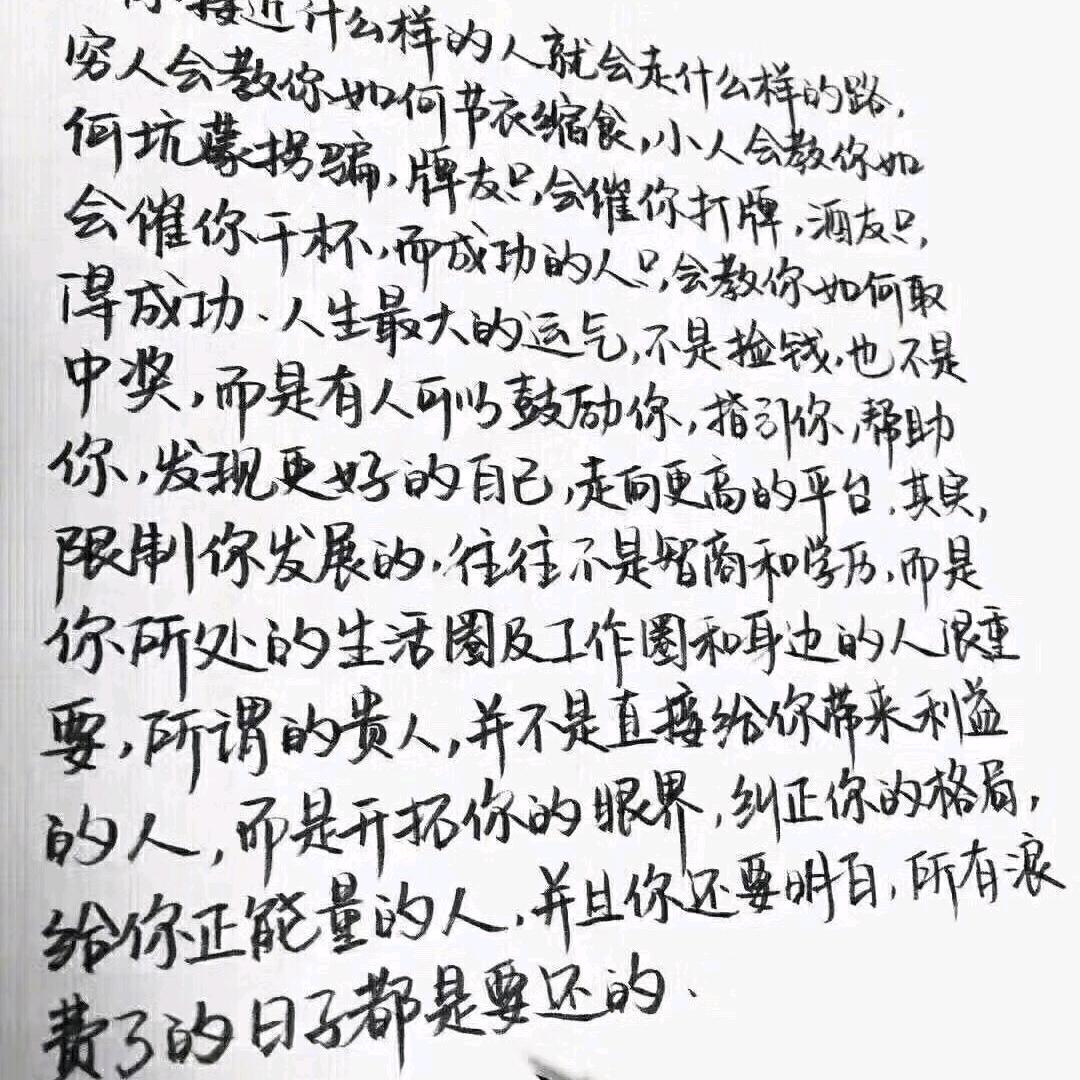 你接近什么样的人就会走什么样的路,
穷人会教你如何节衣缩食,小人会教你如
何坑蒙拐骗,牌友只会催你打牌,酒友只
会催你干杯,而成功的人只会教你如何取
得成功、人生最大的运气,不是捡钱,也不是
中奖,而是有人可以鼓励你,指引你,帮助
你,发现更好的自己,走向更高的平台.其实,
限制你发展的,往往不是智商和学历,而是
你所处的生活圈及工作圈和身边的人很重
要,所谓的贵人,并不是直接给你带来利益
的人,而是开拓你的眼界,纠正你的格局,
给你正能量的人.并且你还要明白,所有浪
费了的日子都是要还的.